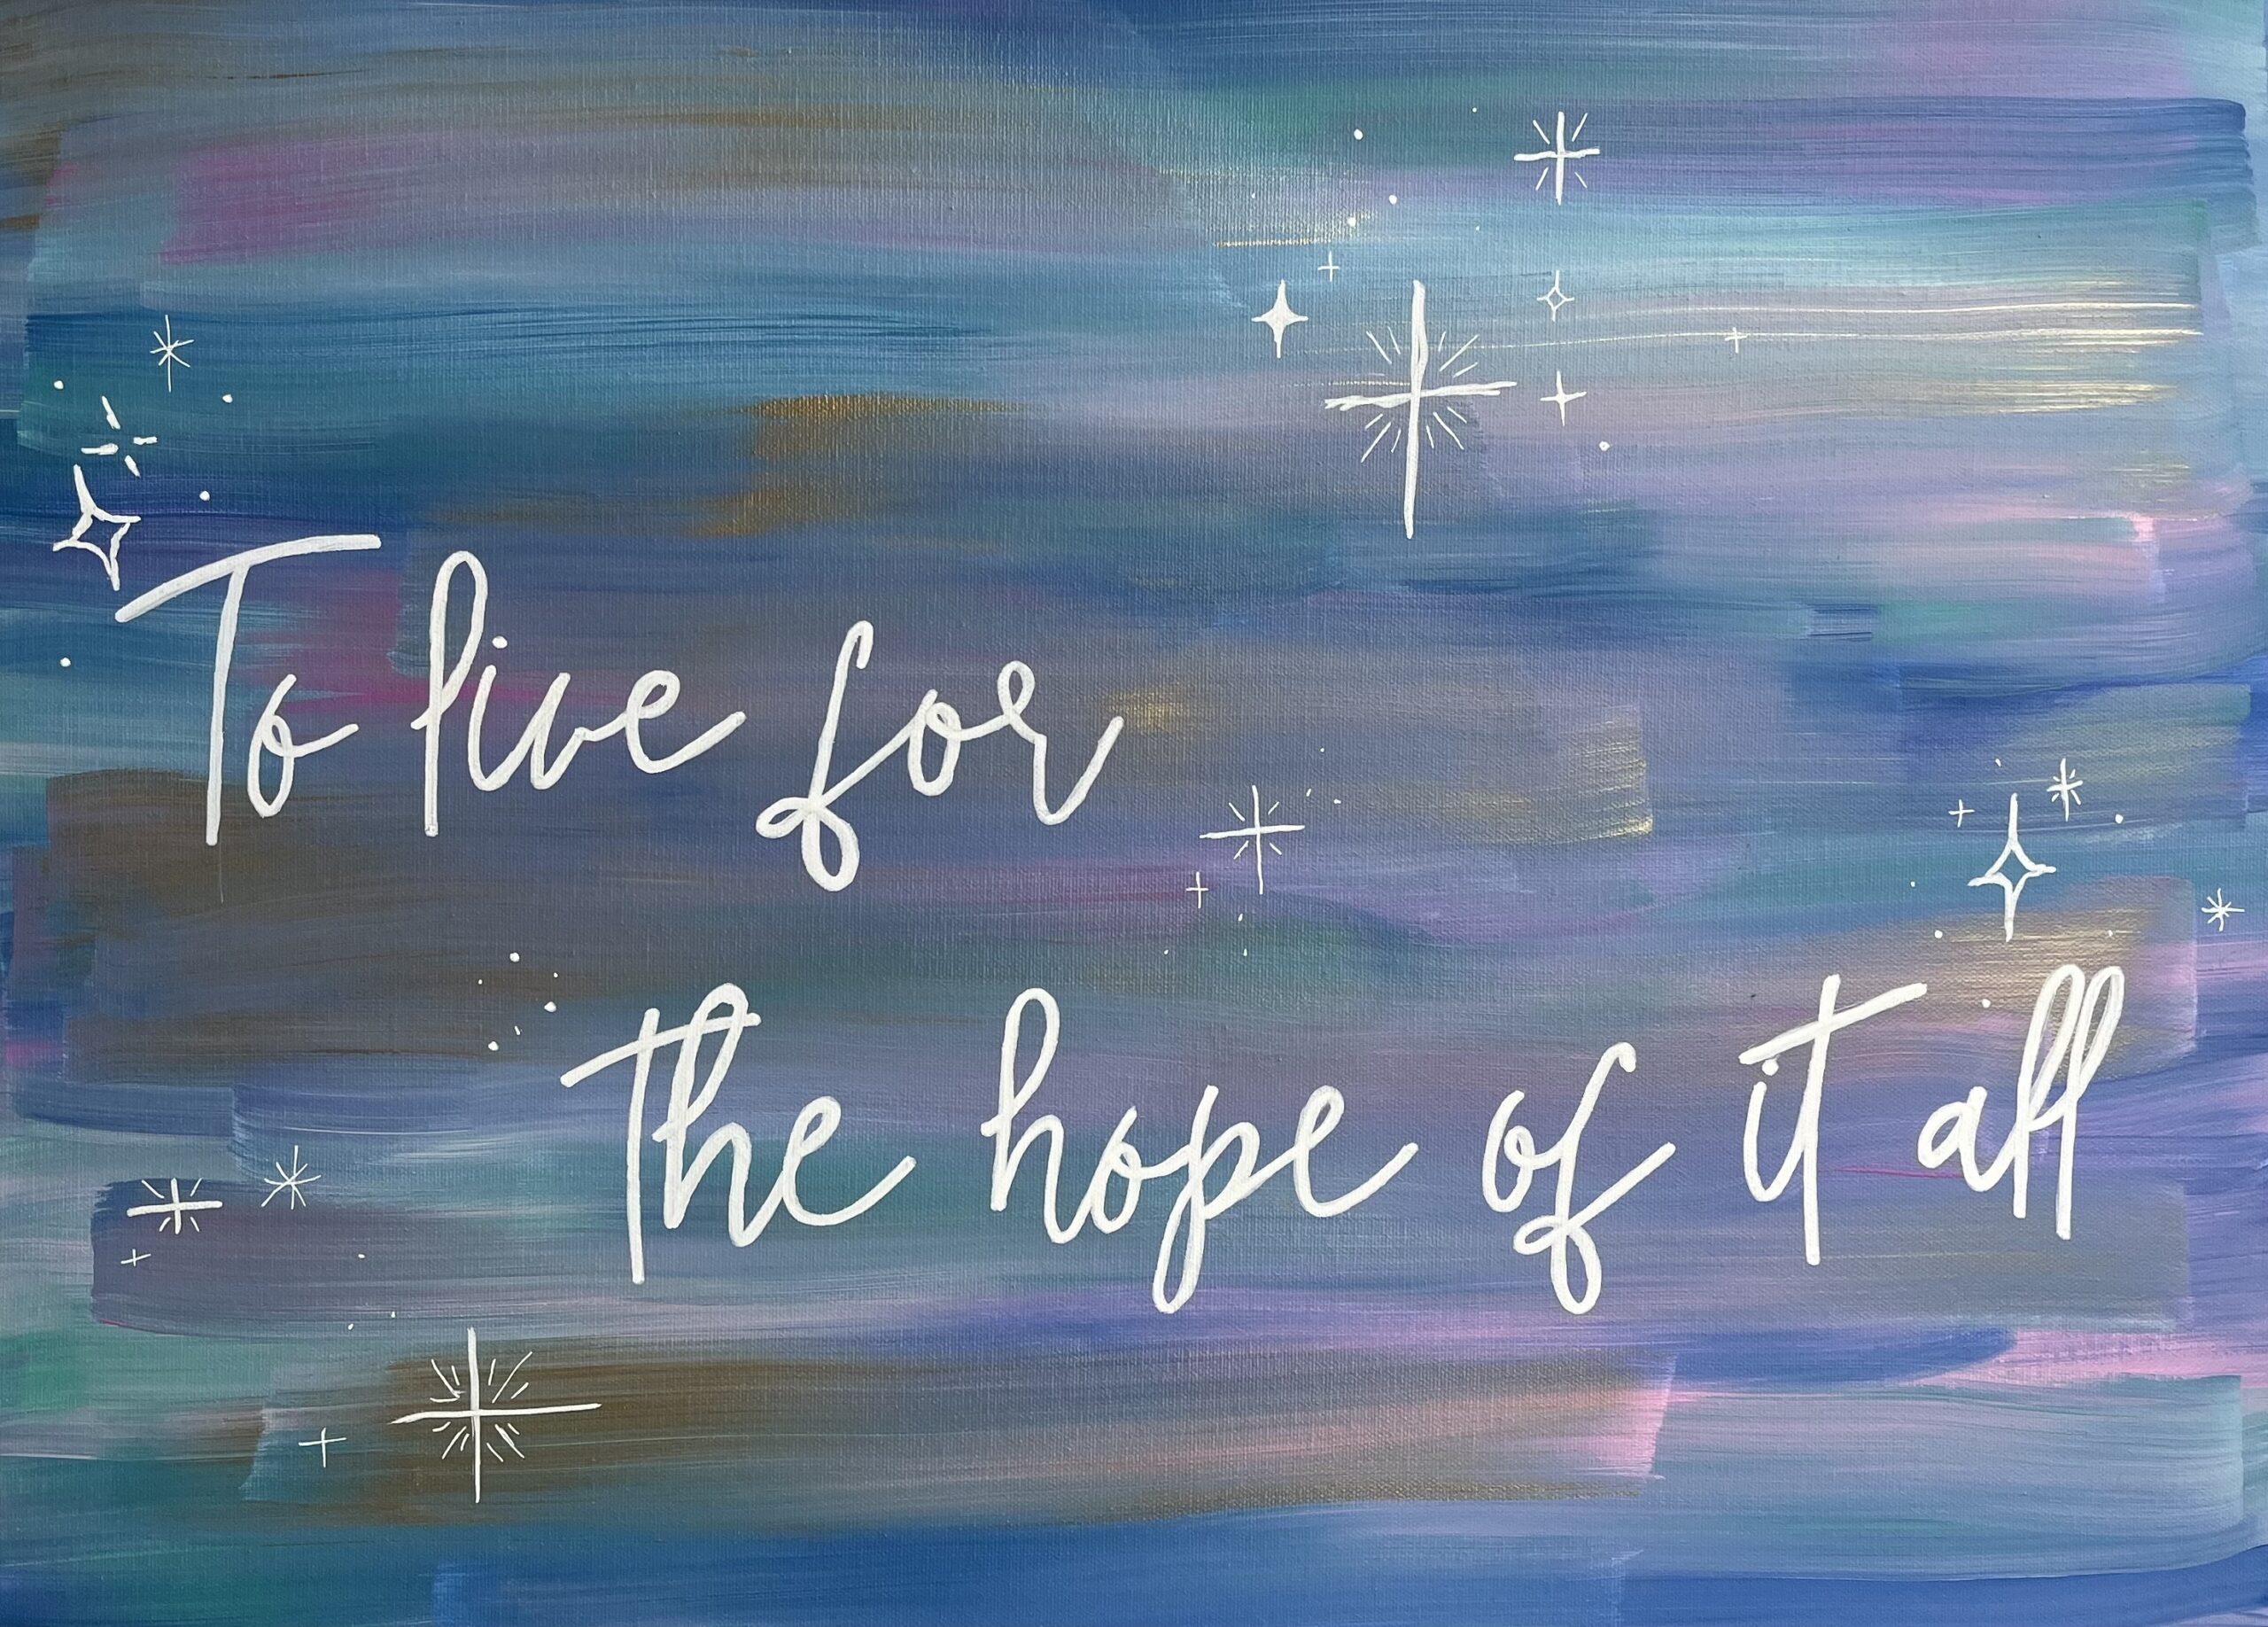 To live for
the hope of it all